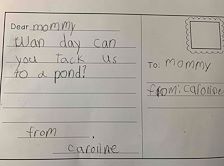 Dear mommy
Wan day can
you tack us
to a pond?
from
caroline
To: mommy
from: caroline